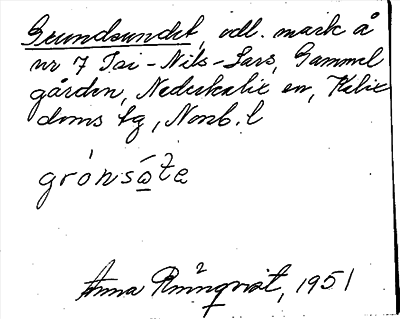 Grundsundet, odl. mark å
nr 7 Isi-Nils-Lars, Gammel
gården, Nederkalix sn, Kalix
doms tg, Norrb. l
grónsátə
Anna Rönnqvist, 1951